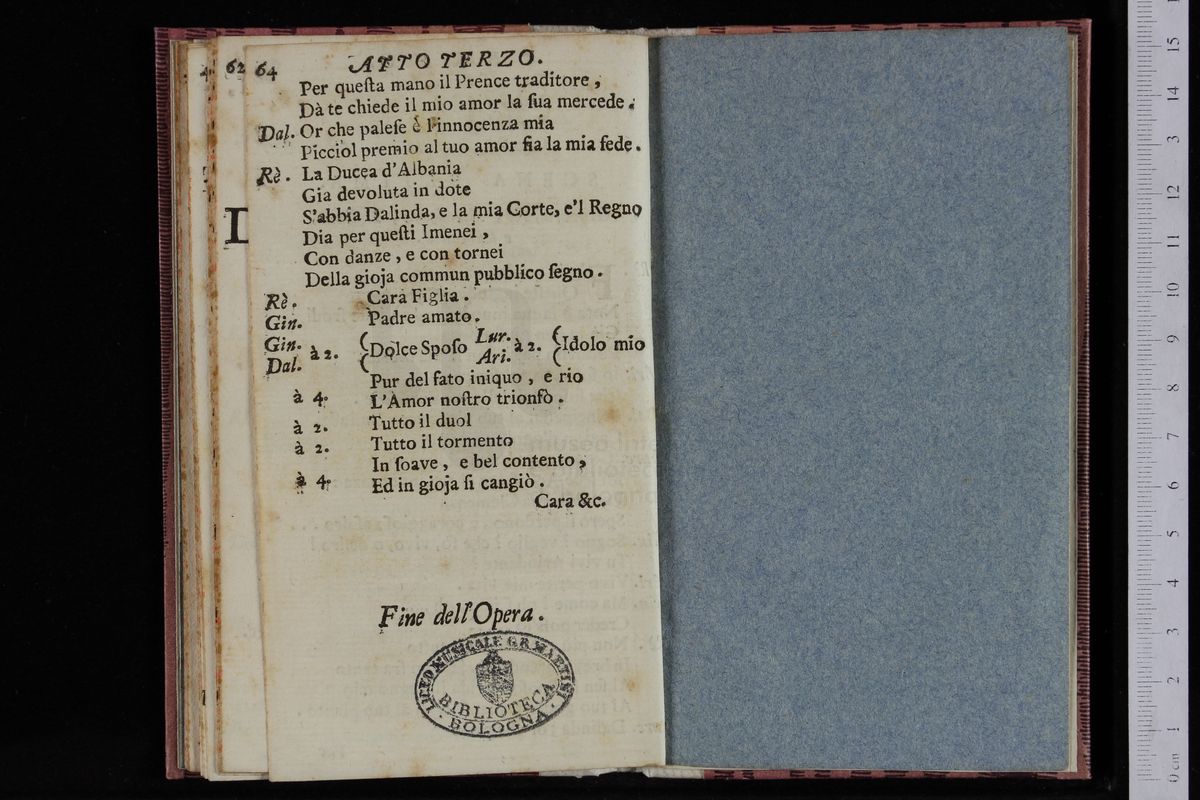 62 64 ATTO TERZO.
Per queſta mano il Prence traditore,
Dà te chiede il mio amor la ſua mercede.
Dal. Or che paleſe è l'innocenza mia
Picciol premio al tuo amor fia la mia fede.
Rè. La Ducea d'Albania
Gia devoluta in dote
S'abbia Dalinda, e la mia Corte, e'l Regno
Dia per queſti Imenei,
Con danze, e con tornei
Della gioja commun pubblico ſegno.
Rè. Cara Figlia.
Gin. Padre amato.
Gin. Dal. à 2. {Dolce Spoſo Lur. Ari. à 2. {Idolo mio
Pur del fato iniquo, e rio
à 4. L'Amor noſtro trionfò.
à 2. Tutto il duol
à 2. Tutto il tormento
In ſoave, e bel contento,
à 4. Ed in gioja ſi cangiò.
Cara &c.
Fine dell'Opera.
LICEO MUSICALE G.B. MARTINI
BIBLIOTECA
· BOLOGNA ·
0 cm 1 2 3 4 5 6 7 8 9 10 11 12 13 14 15